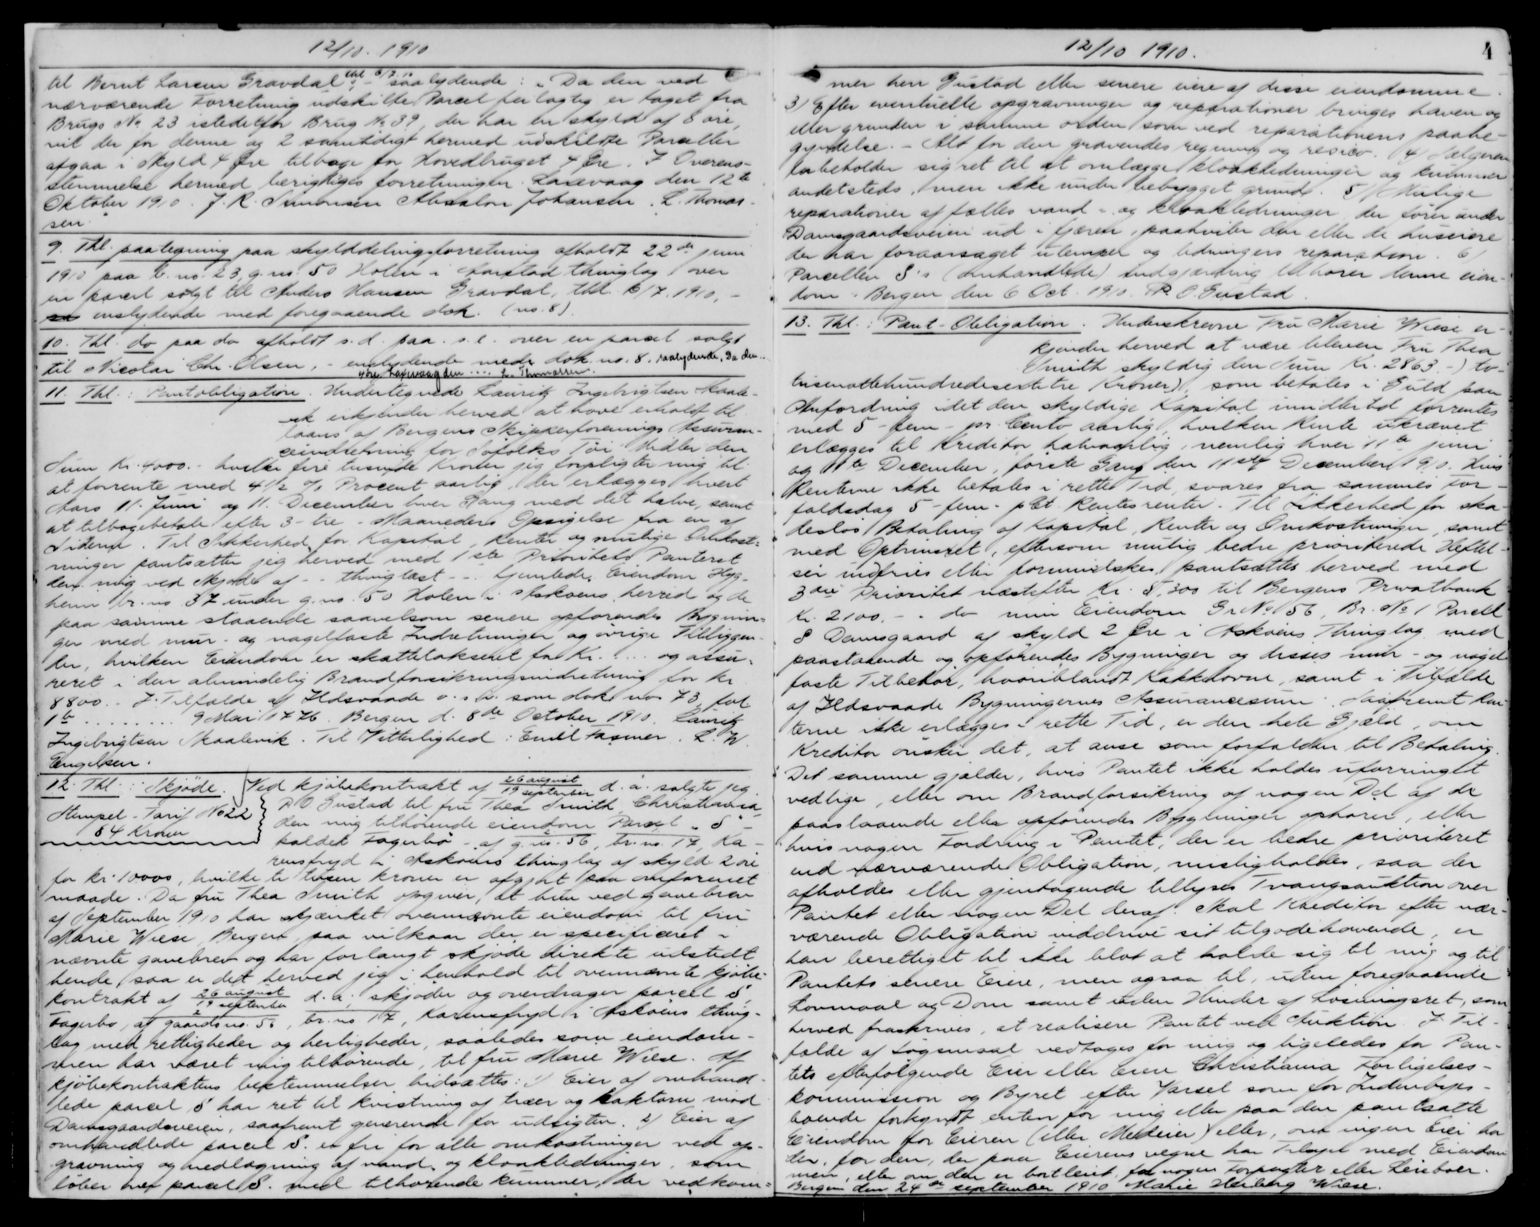 12/10. 1910
til Bernt Larsen Gravdal thl 6/7.10 saalydende: "Da den ved
nærværende Forretning udskilte Parcel feilagtig er taget fra
Brugs No 23 istedetfor Brug No 39, der har en skyld af 8 øre,
vil der for denne og 2 samtidigt hermed udskildte Parceller
afgaa i skyld 4 Øre tilbage for Hovedbruget 4 Øre. I Overens-
stemmelse hermed berigtiges forretningen. Laxevaag den 12te
Oktober 1910. J. R. Simonsen Absalon Johansen. L. Thomas-
sen"
9. Thl. paategning paa skylddelingsforretning afholdt 22de juni
1910 paa b. no. 23 g. no. 50 Holen i Aarstad thinglag over
en parcel solgt til Anders Hansen Gravdal, thl. 6/7. 1910, -
enslydende med foregaaende dok. (no. 8).
10. Thl. do paa do afholdt s. d. paa s. e. over en parsel solgt
til Nicolai Chr. Olsen, - enslydende med dok. no. 8. saalydende, Da den..
4 Øre. Laxevaag den .... L. Thomassen.
11. Thl.: Pantobligation. Undertegnede Lauritz Ingebrigtsen Skaale-
vik erkjender herved at have erholdt til
laans af Bergens Skipperforenings Assuran-
ceindretning for Søfolks Tøi Midler den
Sum Kr. 4000.- hvilke fire tusinde Kroner jeg forpligter mig til
at forrente med 4 1/2 % Procent aarlig, der erlægges hvert
Aars 11. Juni og 11. December hver Gang med det halve, samt
at tilbagebetale efter 3-tre-Maaneders Opsigelse fra en af
Siderne. Til Sikkerhed for Kapital, Renter og mulige Omkost-
ninger pantsætter jeg herved med 1ste Prioritets Panteret
den mig ved Skjøde af - thinglæst -.. hjemlede Eiendom Hyg-
heim br. no. 37 under g. no. 50 Holen i Askøens herred og de
paa samme staaende saavelsom senere opførendes Bygnin-
ger med mur- og nagelfaste Indretninger og øvrige Tilliggen-
der, hvilken Eiendom er skattetakseret for Kr. .... og assu-
reret i den almindelig Brandforsikringsindretning for Kr.
8800.. I Tilfælde af Ildsvaade o.s.v. som dok no 73 fol
1b ......... 9 Mai 1776. Bergen d. 8de October 1910. Lauritz
Ingebrigtsen Skaalevik. Til Vitterlighed: Emil Hasmer. L. W.
Engelsen.
12. Thl.: Skjøde. Ved kjøbekontrakt af 26 august/19 september d. a. solgte jeg
Stempel-Tarif No 22
54 Kroner
P. O. Gustad til fru Thea Smith, Christiania
den mig tilhørende eiendom Parcel "8"
kaldet Fagerbo - af g. no. 56, br. no. 17, Ka-
rensfryd i Askøens thinglag af skyld 2 øre
for kr. 10000, hvilke ti tusen kroner er afgjort paa omforenet
maade. Da fru Thea Smith opgiver, at hun ved gavebrev
af September 1910 har skjænket ovennævnte eiendom til fru
Marie Wiese, Bergen, paa vilkaar der er specificeret i
nævnte gavebrev og har forlangt skjøde direkte utstedt
hende, saa er det herved jeg i henhold til ovennævnte kjøbe-
kontrakt af 26 august/19 september d. a. skjøder og overdrager parcel 8,
Fagerbo, af gaards no. 56, br. no 17, Karensfryd i Askøens thing-
lag med rettigheder og herligheder, saaledes som eiendom-
men har været mig tilhørende, til fru Marie Wiese. Af
kjøbekontraktens bestemmelser hidsættes: 1) Eier af omhand-
lede parcel 8 har ret til kvistning af træer og kaktern mod
Damsgaardsveien, saafremt generende for udsigten. 2) Eier af
omhandlede parcel 8. er fri for alle omkostninger ved op-
gravning og nedlægning af vand- og kloakledninger, som
løber over parcel 8. med tilhørende kummer, der vedkom-
12/10 1910.
4
mer herr Gustad eller senere eiere af disse eiendomme.
3) Efter eventuelle opgravninger og reparationer bringes haven og
eller grunden i samme orden som ved reparationens paabe-
gyndelse. - Alt for den gravendes regning og resico. 4) Sælgeren
forbeholder sig ret til at omlægge kloakledninger og kummer
andetsteds, men ikke under bebygget grund. 5) Mulige
reparationer af fælles vand- og kloakledninger, der fører under
Damsgaardsveien ud i fjæren, paahviler den eller de huseiere
der har foraarsaget ulemper og ledningers reparation. 6)
Parcellen 8's (omhandlede) indgjærding tilhører denne eien-
dom. Bergen den 6 Oct. 1910. P. O. Gustad.
13. Thl.: Pant-Obligation. Underskrevne Fru Marie Wiese er-
kjender herved at være bleven Fru Thea
Smith skyldig den Sum Kr. 2863.- (to-
tusenottehundredesextitre Kroner), som betales i Guld paa
Anfordring idet den skyldige Kapital imidlertid forrentes
med 5-fem- pr. Cento aarlig, hvilken Rente ukrævet
erlægges til Kreditor halvaarlig, nemlig hver 11te Juni
og 11te December, første Gang den 11ste December 1910. Hvis
Renterne ikke betales i rette Tid, svares fra sammes for-
faldsdag 5-fem- pCt. Rentes renter. Til Sikkerhed for ska-
desløs Betaling af Kapital, Renter og Omkostninger, samt
med Oprinsret, eftersom mulig bedre prioriterede Heftel-
ser indfries eller formindskes, pantsættes herved med
3die Prioritet næstefter Kr. 5,300 til Bergens Privatbank
Kr. 2100,- - do min Eiendom Gr. No 56, Br. No 1 Parcel
8 Damsgaard af skyld 2 Øre i Askøens Thinglag med
paastaaende og opførendes Bygninger og disses mur- og nagel-
faste Tilbehør, hvoriblandt Kakkelovne, samt i Tilfælde
af Ildsvaade Bygningernes Assurancesum. Saafremt Ren-
terne ikke erlægges i rette Tid, er den hele Gjæld, om
Kreditor ønsker det, at anse som forfalden til Betaling.
Det samme gjælder, hvis Pantet ikke holdes uforringet
vedlige, eller om Brandforsikring af nogen Del af de
paastaaende eller opførendes Bygninger ophører, eller
hvis nogen Fordring i Pantet, der er bedre prioriteret
end nærværende Obligation, misligholdes, saa der
afholdes eller gjentagende tillyses Tvangsauktion over
Pantet eller nogen Del deraf. Skal Kreditor efter nær-
værende Obligation inddrive sit tilgodehavende, er
han berettiget til ikke blot at holde sig til mig og til
Pantets senere Eiere, men ogsaa til, uden foregaaende
Lovmaal og Dom samt uden Hinder af Løsningsret, som
herved fraskrives, at realisere Pantet ved Auktion. I Til-
fælde af Søgsmaal vedtages for mig og ligeledes for Pan-
tets efterfølgende Eier eller Eiere Christiania Forligelses-
kommission og Byret efter Varsel som for Indenbyes-
boende forkyndt enten for mig eller paa den pantsatte
Eiendom for Eieren (eller Medeier) eller, om ingen Eier bor
der, for den, der paa Eierens vegne har Tilsyn med Eiendom-
men, eller om den er bortleiet, for nogen Forpagter eller Leieboer.
Bergen den 24de september 1910 Marie Herberg Wiese.